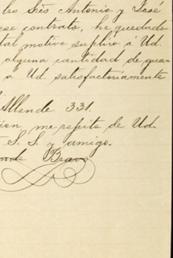 los Sres Antonio y José
ese contrato, he quedado
tal motivo suplico a Ud.
alguna cantidad de
a Ud satisfactoriamente
Allende 331.
me repito de Ud.
S. S. y amigo.
Bravo